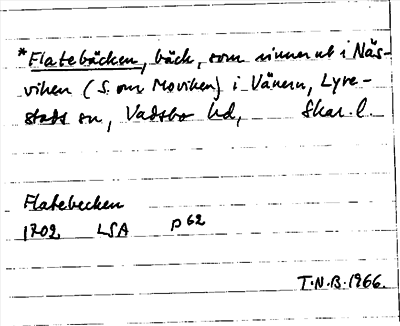 *Flatebäcken, bäck, som rinner ut i Näs-
viken (S. om Moviken) i Vänern, Lyre-
stads sn, Vadsbo hd, Skar. l.
Flatebecken
1702 LSA P 62
T.N.B. 1966.